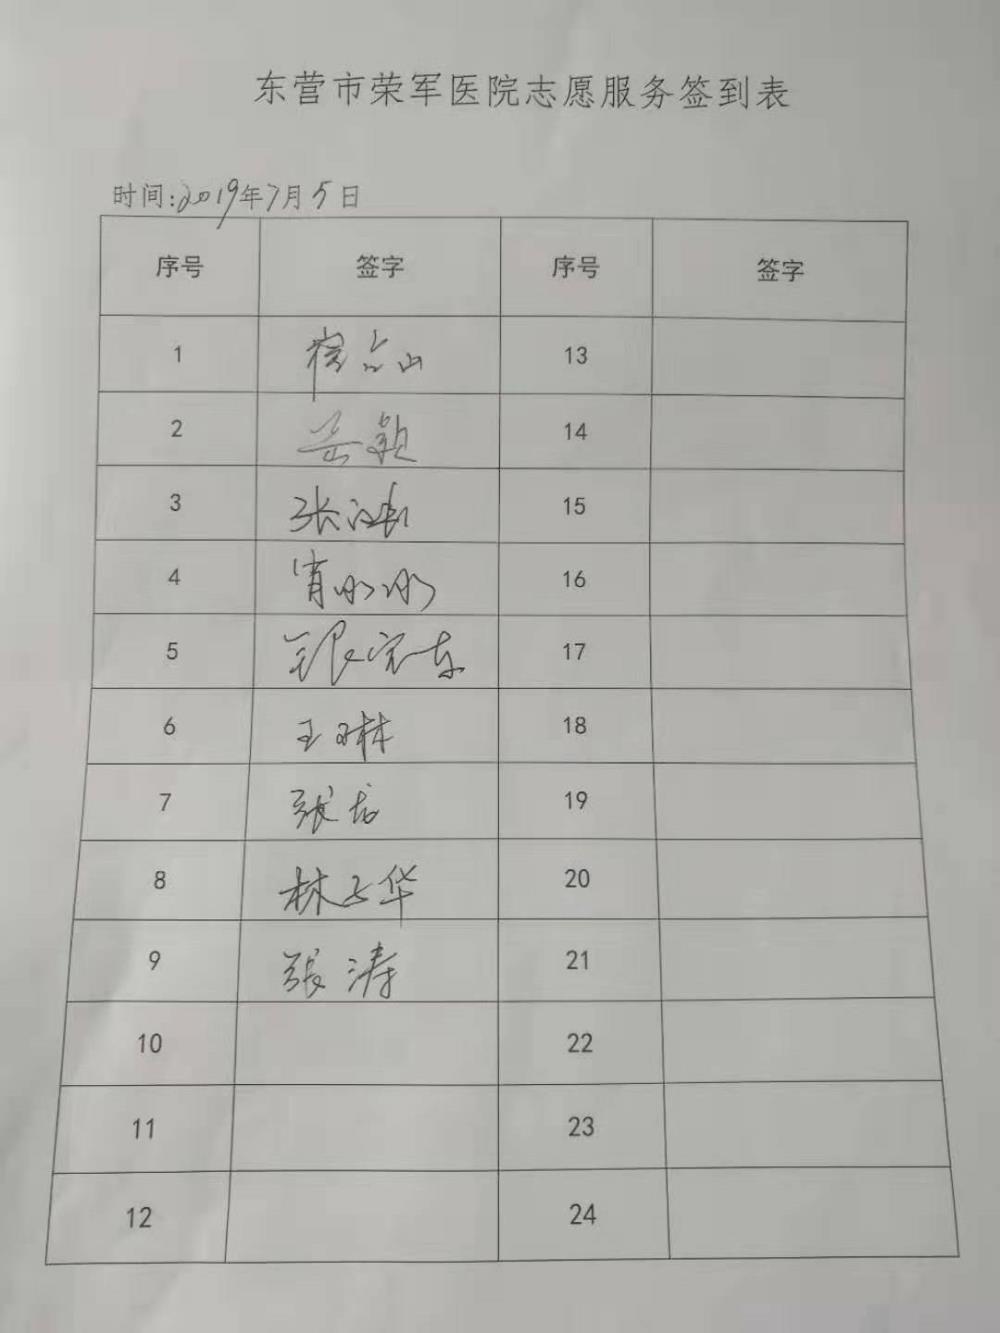 东营市荣军医院志愿服务签到表
时间:2019年7月5日
序号 签字 序号 签字
1 13
2 岳颖 14
3 张 15
4 肖冰冰 16
5 17
6 王琳 18
7 张 19
8 林 华 20
9 張涛 21
10 22
11 23
12 24